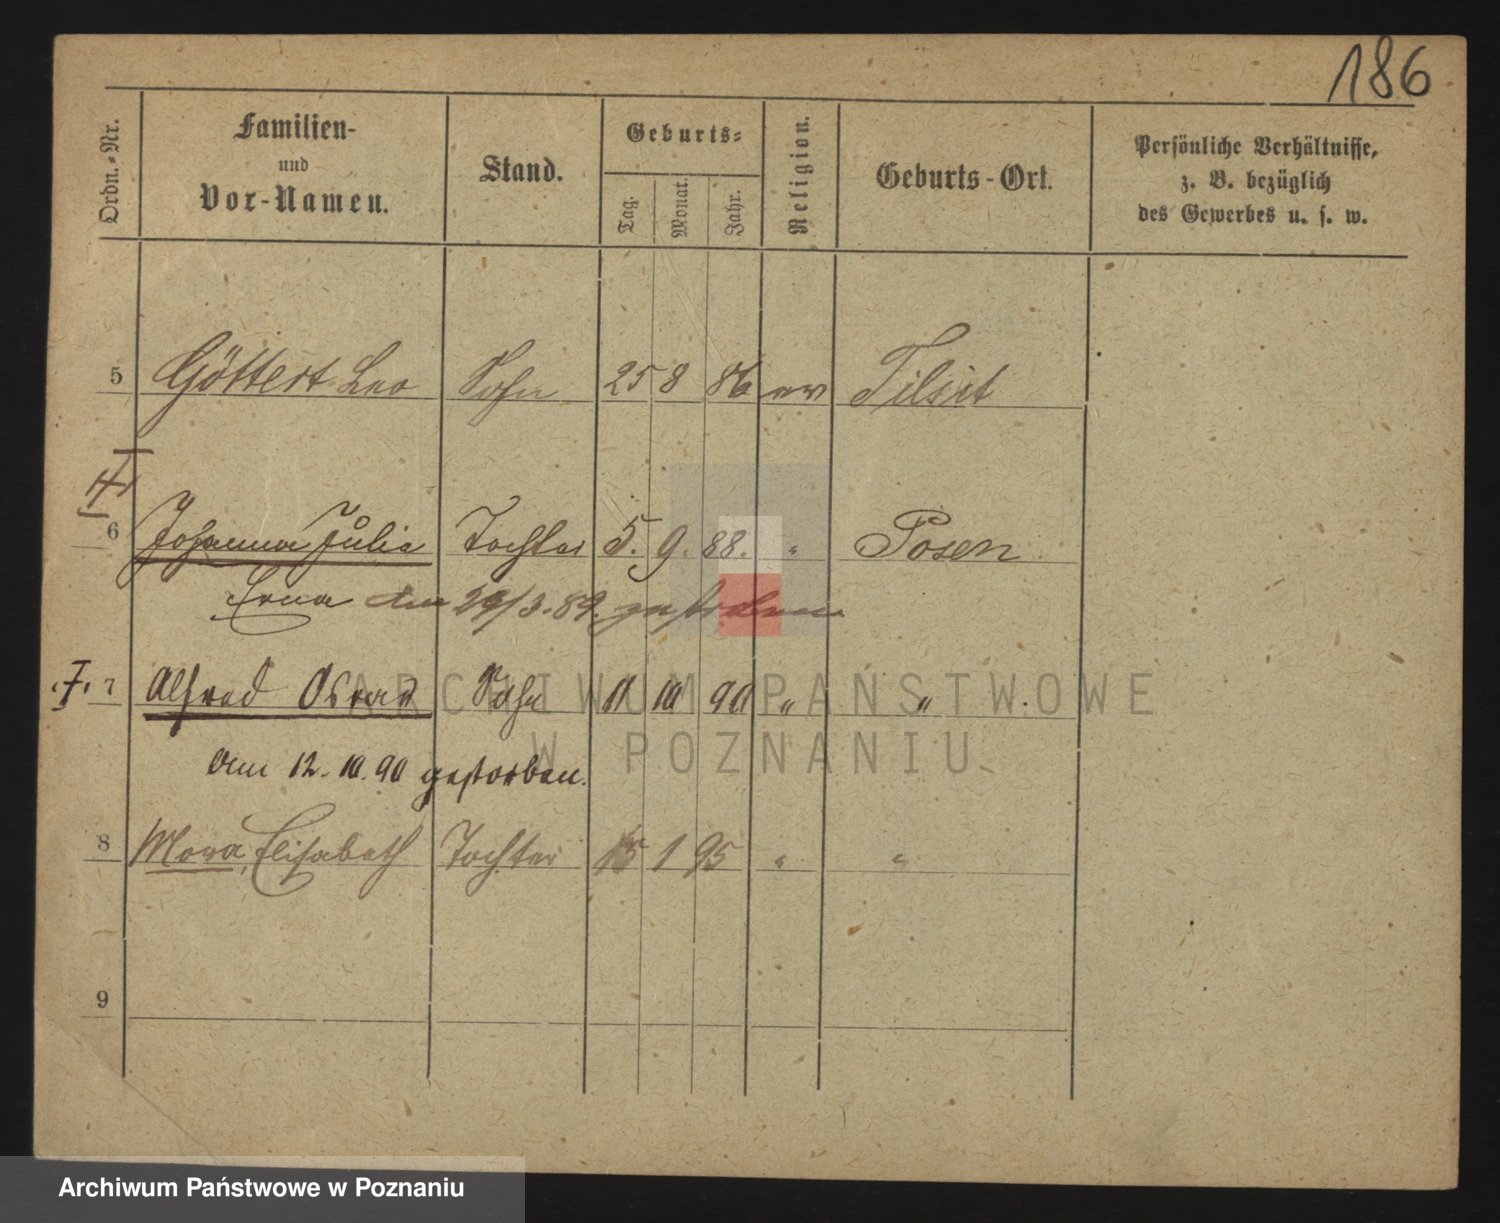 186
Ordn.-Nr.
Familien-
und
Vor-Namen.
Stand.
Geburts-
Tag.
Monat.
Jahr.
Religion.
Geburts-Ort.
Persönliche Verhältnisse,
z. B. bezüglich
des Gewerbes u. s. w.
5 Göttert Leo Sohn 25 8 86 ev Tilsit
6 Johanna Julie Tochter 5. 9. 88. " Posen
Erna am 29/3.89. gestorben
7 Alfred Oskar Sohn 11 10 90 " "
am 12.10.90 gestorben.
8 Elisabeth Tochter 15 1 95 " "
9
ARCHIWUM PAŃSTWOWE
W POZNANIU
Archiwum Państwowe w Poznaniu